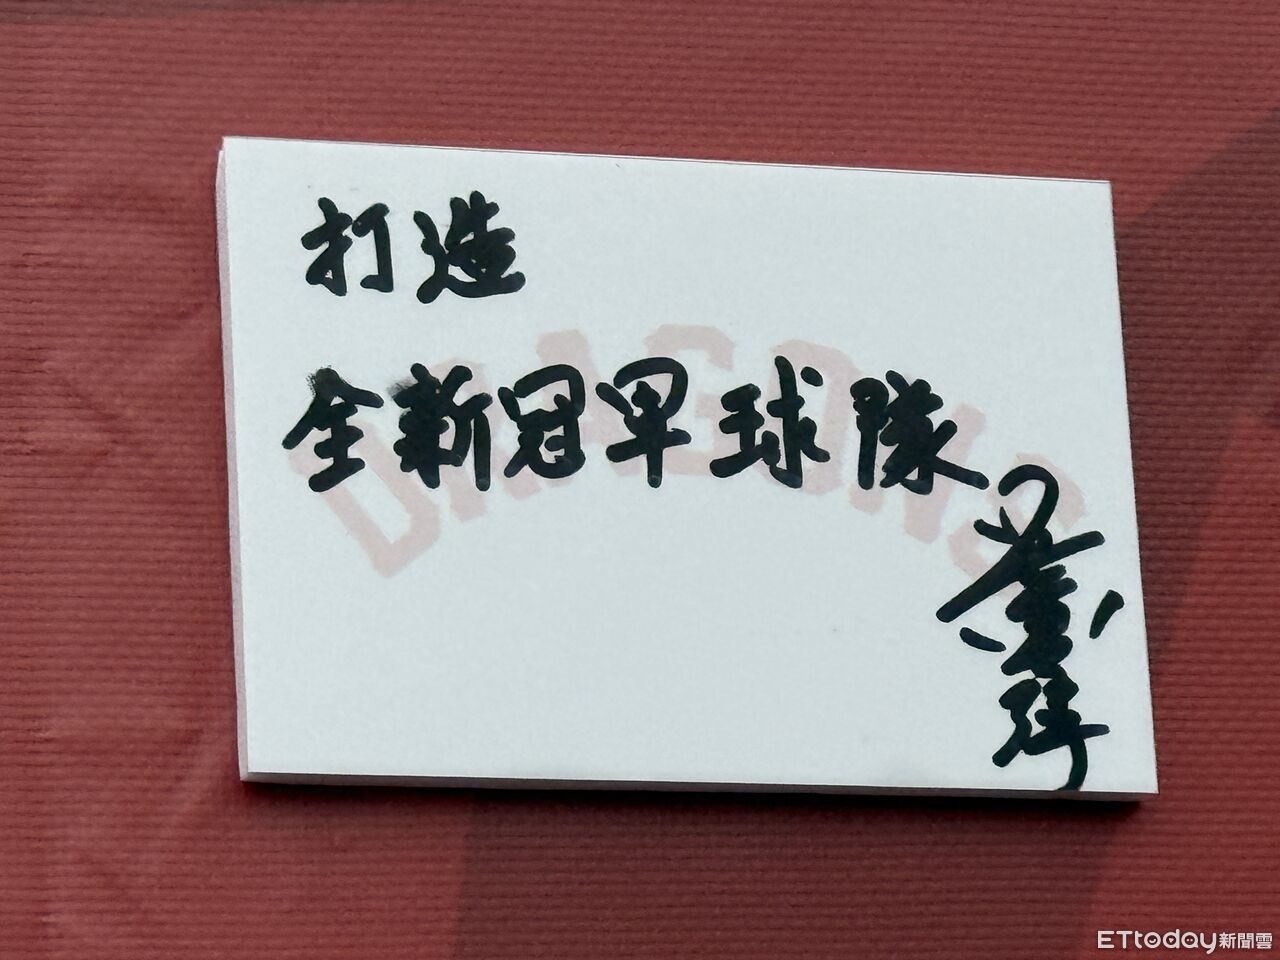 打造
DRAGONS
全新冠軍球隊
ETtoday新聞雲